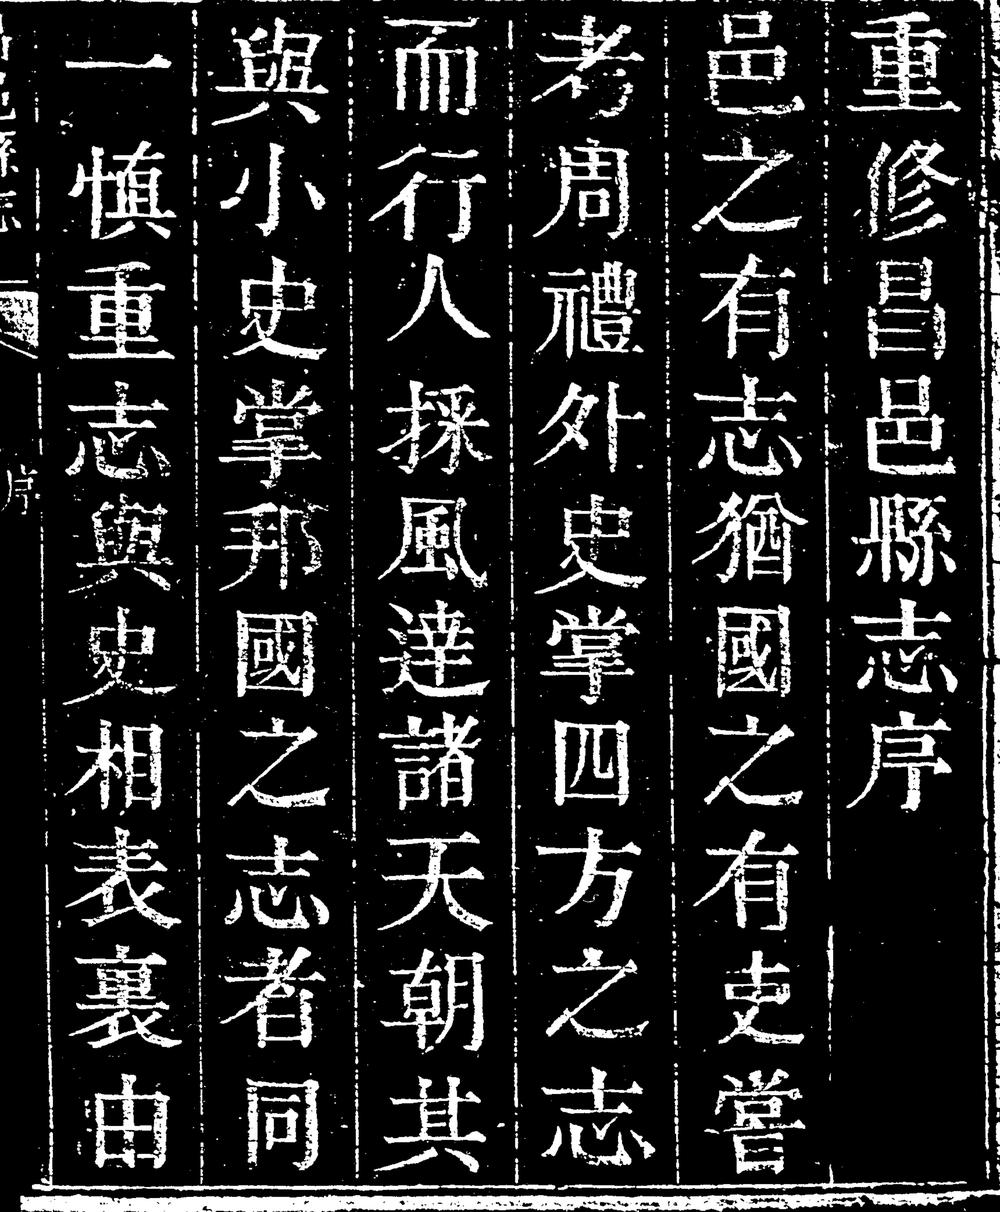 重修昌邑縣志序
邑之有志猶國之有史嘗
考周禮外史掌四方之志
而行人採風達諸天朝其
與小史掌邦國之志者同
一慎重志與史相表裏由
序